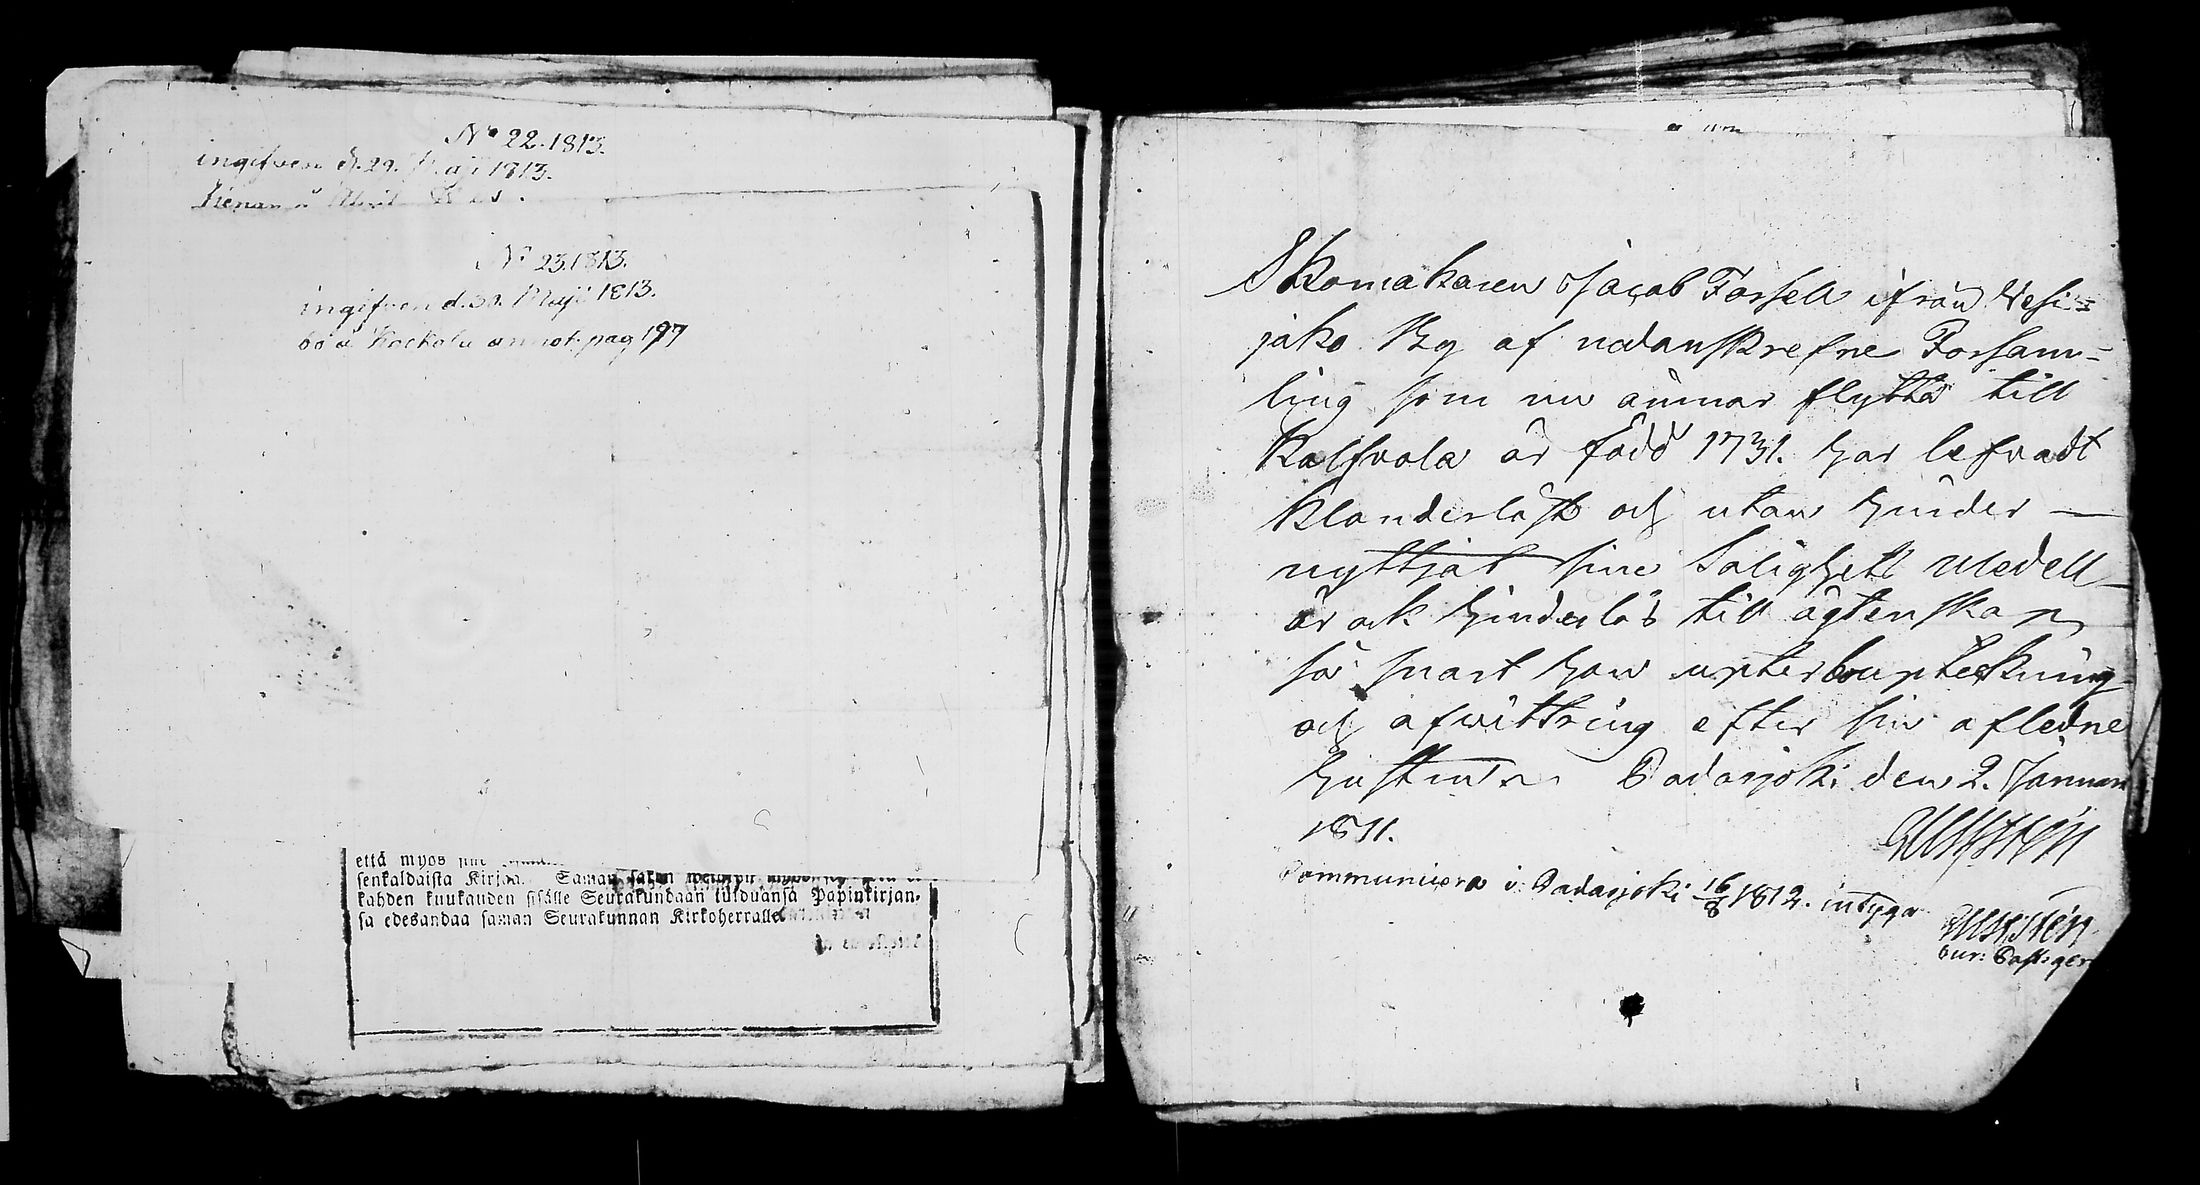 No 22. 1813.
ingifven d. 29. Maji 1813.
No 23. 1813.
ingifven d. 30. Maji 1813.
bo å Kockola annot. pag 197
että myös
senkaldaista Kirjaa. Saman
kahden kuukauden sisälle Seurakundaan tulduansa Papinkirjan-
sa edesandaa saman Seurakunnan Kirkoherralle
Skomakaren Jacob Forsell ifrån Wesi=
jako By af nedanskrefne Försam=
ling som nu ämnar flytta till
Kalfvola är född 1731. har lefvadt
klanderlöst och utan hinder
nyttjat sine Salighetz Medell
är ock hinderlös till ägtenskap
så snart han upter bouptekning
och afwittring efter sin aflidne
hustru Padasjoki den 2. Januari
1811.
Communicera i Padasjoki 16/8 1812. intygar